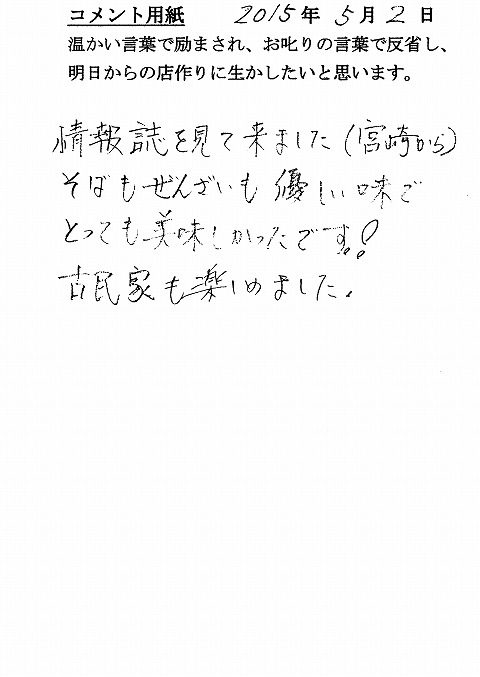 コメント用紙 2015年 5月 2日
温かい言葉で励まされ、お叱りの言葉で反省し、
明日からの店作りに生かしたいと思います。
情報誌を見て来ました(宮崎から)
そばもぜんざいも優しい味で
とっても美味しかったです!!
古民家も楽しめました。